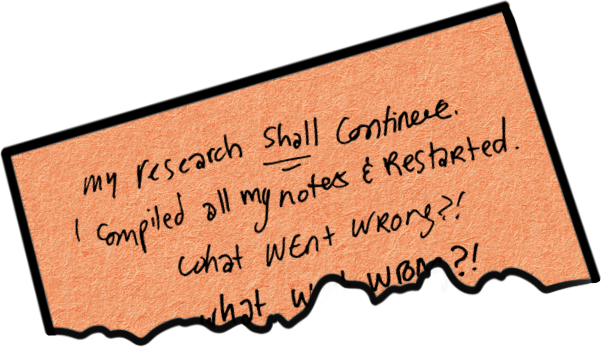 my research shall continue.
I compiled all my notes & Restarted.
what WEnt WRong?!
what w WRong?!